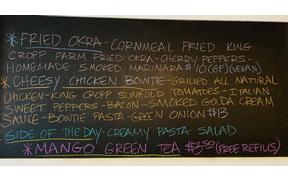 *FRIED OKRA-CORNMEAL FRIED KING
CROPP FARM FRIED OKRA-CHERRY PEPPERS-
HOMEMADE SMOKED MARINARA #10(GF)(VEGAN)
*CHEESY CHICKEN BOWTIE-GRILLED ALL NATURAL
CHICKEN-KING CROPP SUNGOLD TOMATOES-ITALIAN
SWEET PEPPERS-BACON-SMOKED GOUDA CREAM
SAUCE-BOWTIE PASTA-GREEN ONION #13
SIDE OF THE DAY-CREAMY PASTA SALAD
*MANGO GREEN TEA $3.50 (FREE REFILLS)